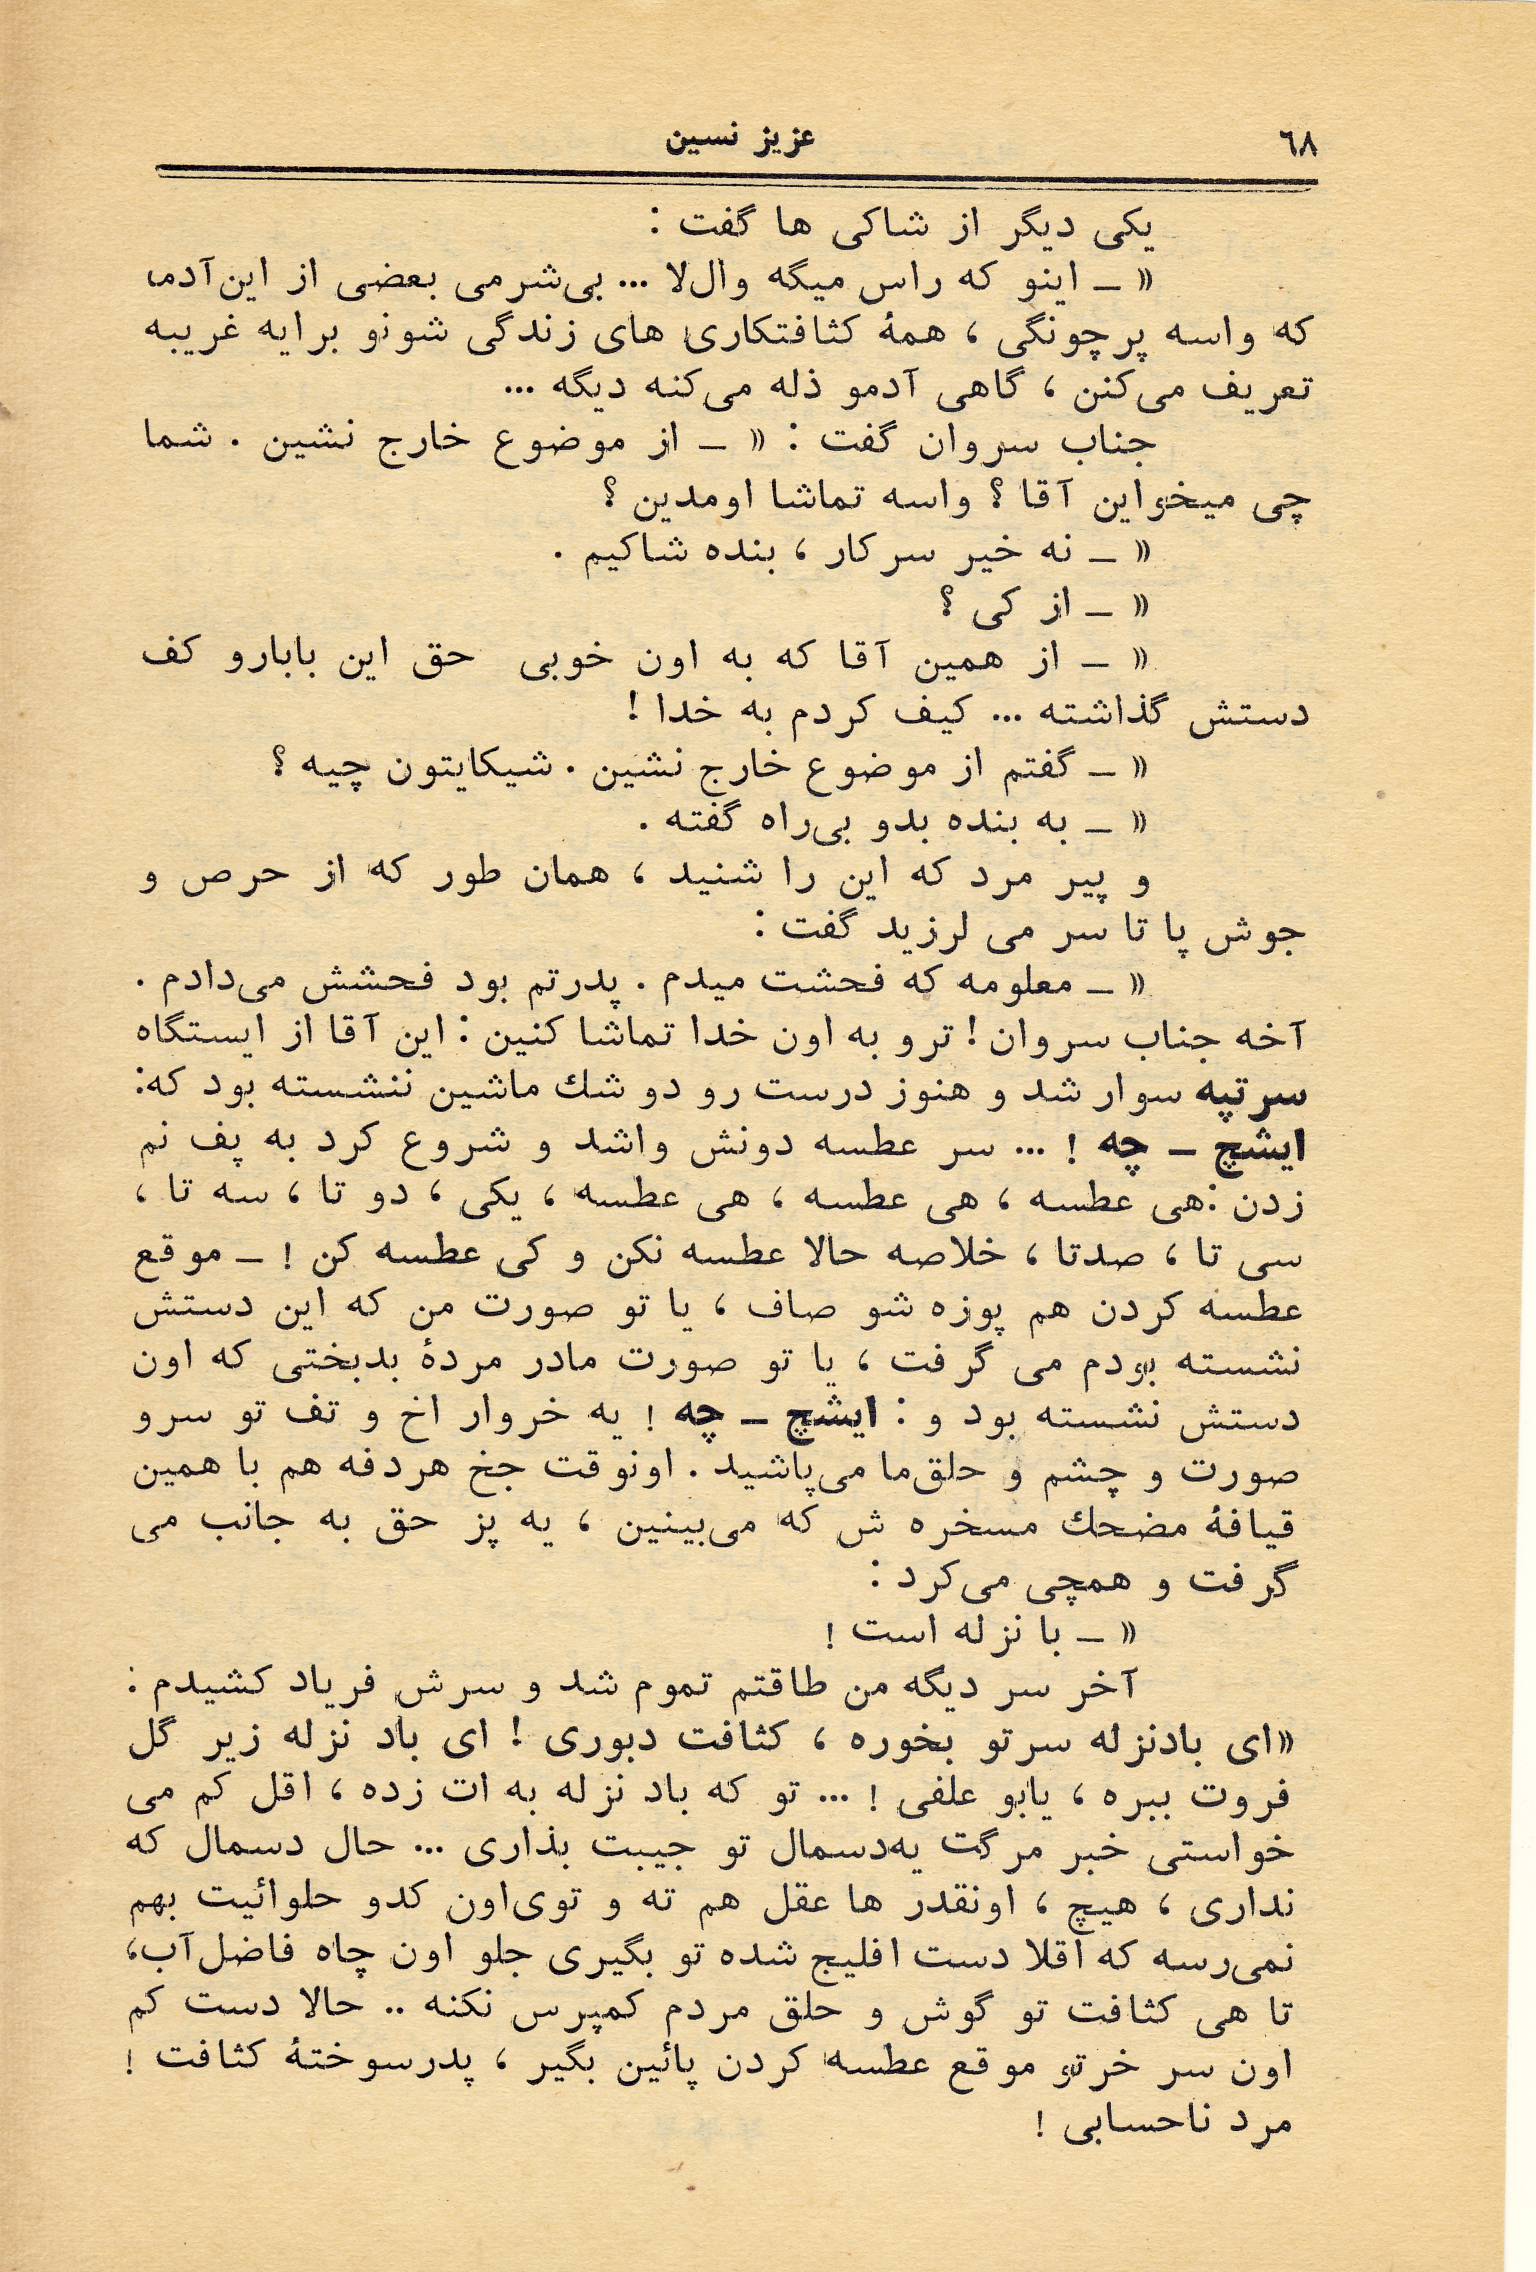 ۶۸
عزیز نسین
یکی دیگر از شاکی ها گفت :
« ــ اینو که راس میگه وال‌لا ... بی‌شرمی بعضی از این‌آدما
که واسه پرچونگی ، همهٔ کثافتکاری های زندگی شونو برایه غریبه
تعریف می‌کنن ، گاهی آدمو ذله می‌کنه دیگه ...
جناب سروان گفت : « ــ از موضوع خارج نشین . شما
چی میخواین آقا ؟ واسه تماشا اومدین ؟
« ــ نه خیر سرکار ، بنده شاکیم .
« ــ از کی ؟
« ــ از همین آقا که به اون خوبی حق این بابارو کف
دستش گذاشته ... کیف کردم به خدا !
« ــ گفتم از موضوع خارج نشین . شیکایتون چیه ؟
« ــ به بنده بدو بی‌راه گفته .
و پیر مرد که این را شنید ، همان طور که از حرص و
جوش پا تا سر می لرزید گفت :
« ــ معلومه که فحشت میدم . پدرتم بود فحشش می‌دادم .
آخه جناب سروان ! ترو به اون خدا تماشا کنین : این آقا از ایستگاه
سرتپه سوار شد و هنوز درست رو دوشك ماشین ننشسته بود که:
ایشچ ــ چه ! ... سر عطسه دونش واشد و شروع کرد به پف نم
زدن :هی عطسه ، هی عطسه ، هی عطسه ، یکی ، دو تا ، سه تا ،
سی تا ، صدتا ، خلاصه حالا عطسه نکن و کی عطسه کن ! ــ موقع
عطسه کردن هم پوزه شو صاف ، یا تو صورت من که این دستش
نشسته بودم می گرفت ، یا تو صورت مادر مردهٔ بدبختی که اون
دستش نشسته بود و : ایشچ ــ چه ! یه خروار اخ و تف تو سرو
صورت و چشم و حلق‌ما می‌پاشید . اونوقت جخ هردفه هم با همین
قیافهٔ مضحك مسخره ش که می‌بینین ، یه پز حق به جانب می
گرفت و همچی می‌کرد :
« ــ با نزله است !
آخر سر دیگه من طاقتم تموم شد و سرش فریاد کشیدم :
«ای بادنزله سرتو بخوره ، کثافت دبوری ! ای باد نزله زیر گل
فروت ببره ، یابو علفی ! ... تو که باد نزله به ات زده ، اقل کم می
خواستی خبر مرگت یه‌دسمال تو جیبت بذاری ... حال دسمال که
نداری ، هیچ ، اونقدر ها عقل هم ته و توی‌اون کدو حلوائیت بهم
نمی‌رسه که اقلا دست افلیج شده تو بگیری جلو اون چاه فاضل‌آب،
تا هی کثافت تو گوش و حلق مردم کمپرس نکنه .. حالا دست کم
اون سر خرتو موقع عطسه کردن پائین بگیر ، پدرسوختهٔ کثافت !
مرد ناحسابی !